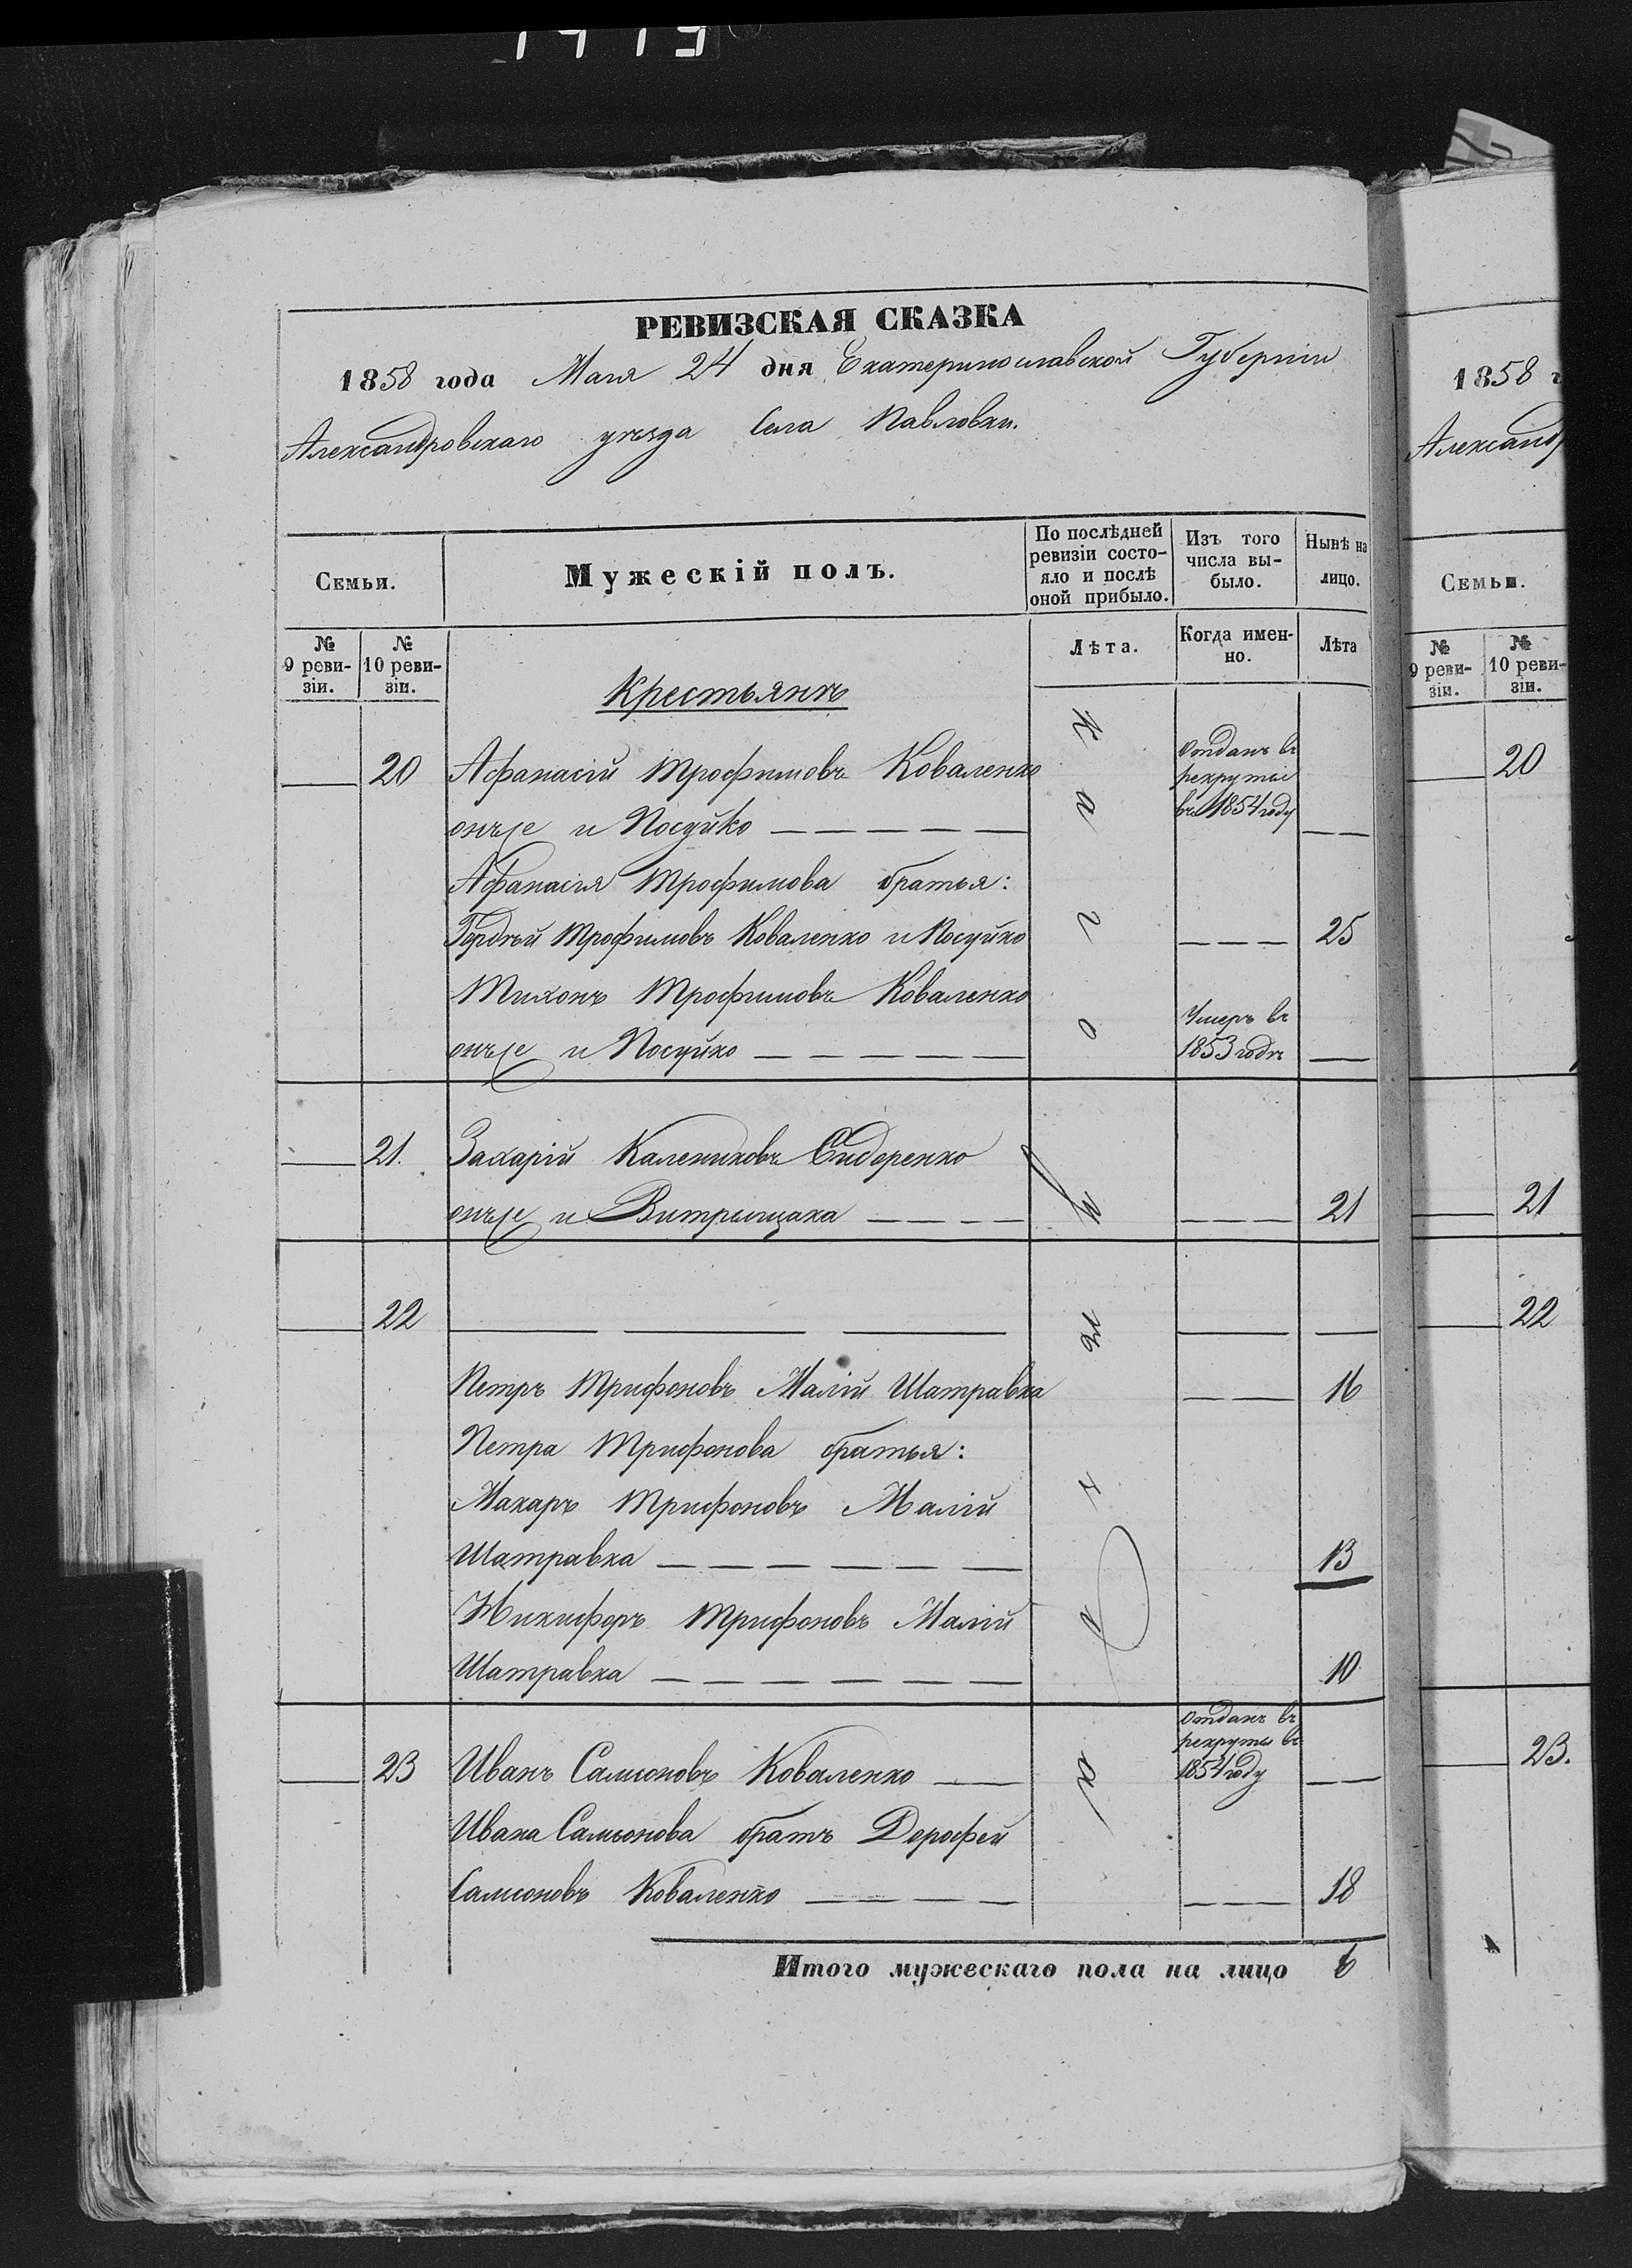 РЕВИЗСКАЯ СКАЗКА
1858 года Мая 24 дня Екатеринославской Губерніи
Александровскаго уѣзда Села Павловки.
Семьи.
Мужескій полъ.
По послѣдней ревизіи состо-
яло и послѣ оной прибыло.
Изъ того числа вы-
было.
Нынѣ на лицо.
№ 9 реви-
зіи.
№ 10 реви-
зіи.
Лѣта.
Когда имен-
но.
Лѣта
Крестьянъ
20 Афанасій Трофимовъ Коваленко
Отданъ въ
рекруты
въ 1854 году
онъ же и Посуйко
Афанасія Трофимова братья:
Гордѣй Трофимовъ Коваленко и Посуйко 25
Тихонъ Трофимовъ Коваленко
онъ же и Посуйко
Умеръ въ
1853 годѣ
21. Захарій Калениковъ Сидоренко
онъ же и 21
22
Петръ Трифоновъ Малій Шатравка 16
Петра Трифонова братья:
Макаръ Трифоновъ Малій
Шатравка 13
Никифоръ Трифоновъ Малій
Шатравка 10
23 Иванъ Самсоновъ Коваленко
Отданъ въ
рекруты въ
1854 году
Ивана Самсонова братъ Дорофей
Самсоновъ Коваленко 18
Итого мужескаго пола на лицо 6
1858 г
Александ
Семьи.
№ 9 реви-
зіи.
№ 10 реви-
зіи.
20
21
22
23.